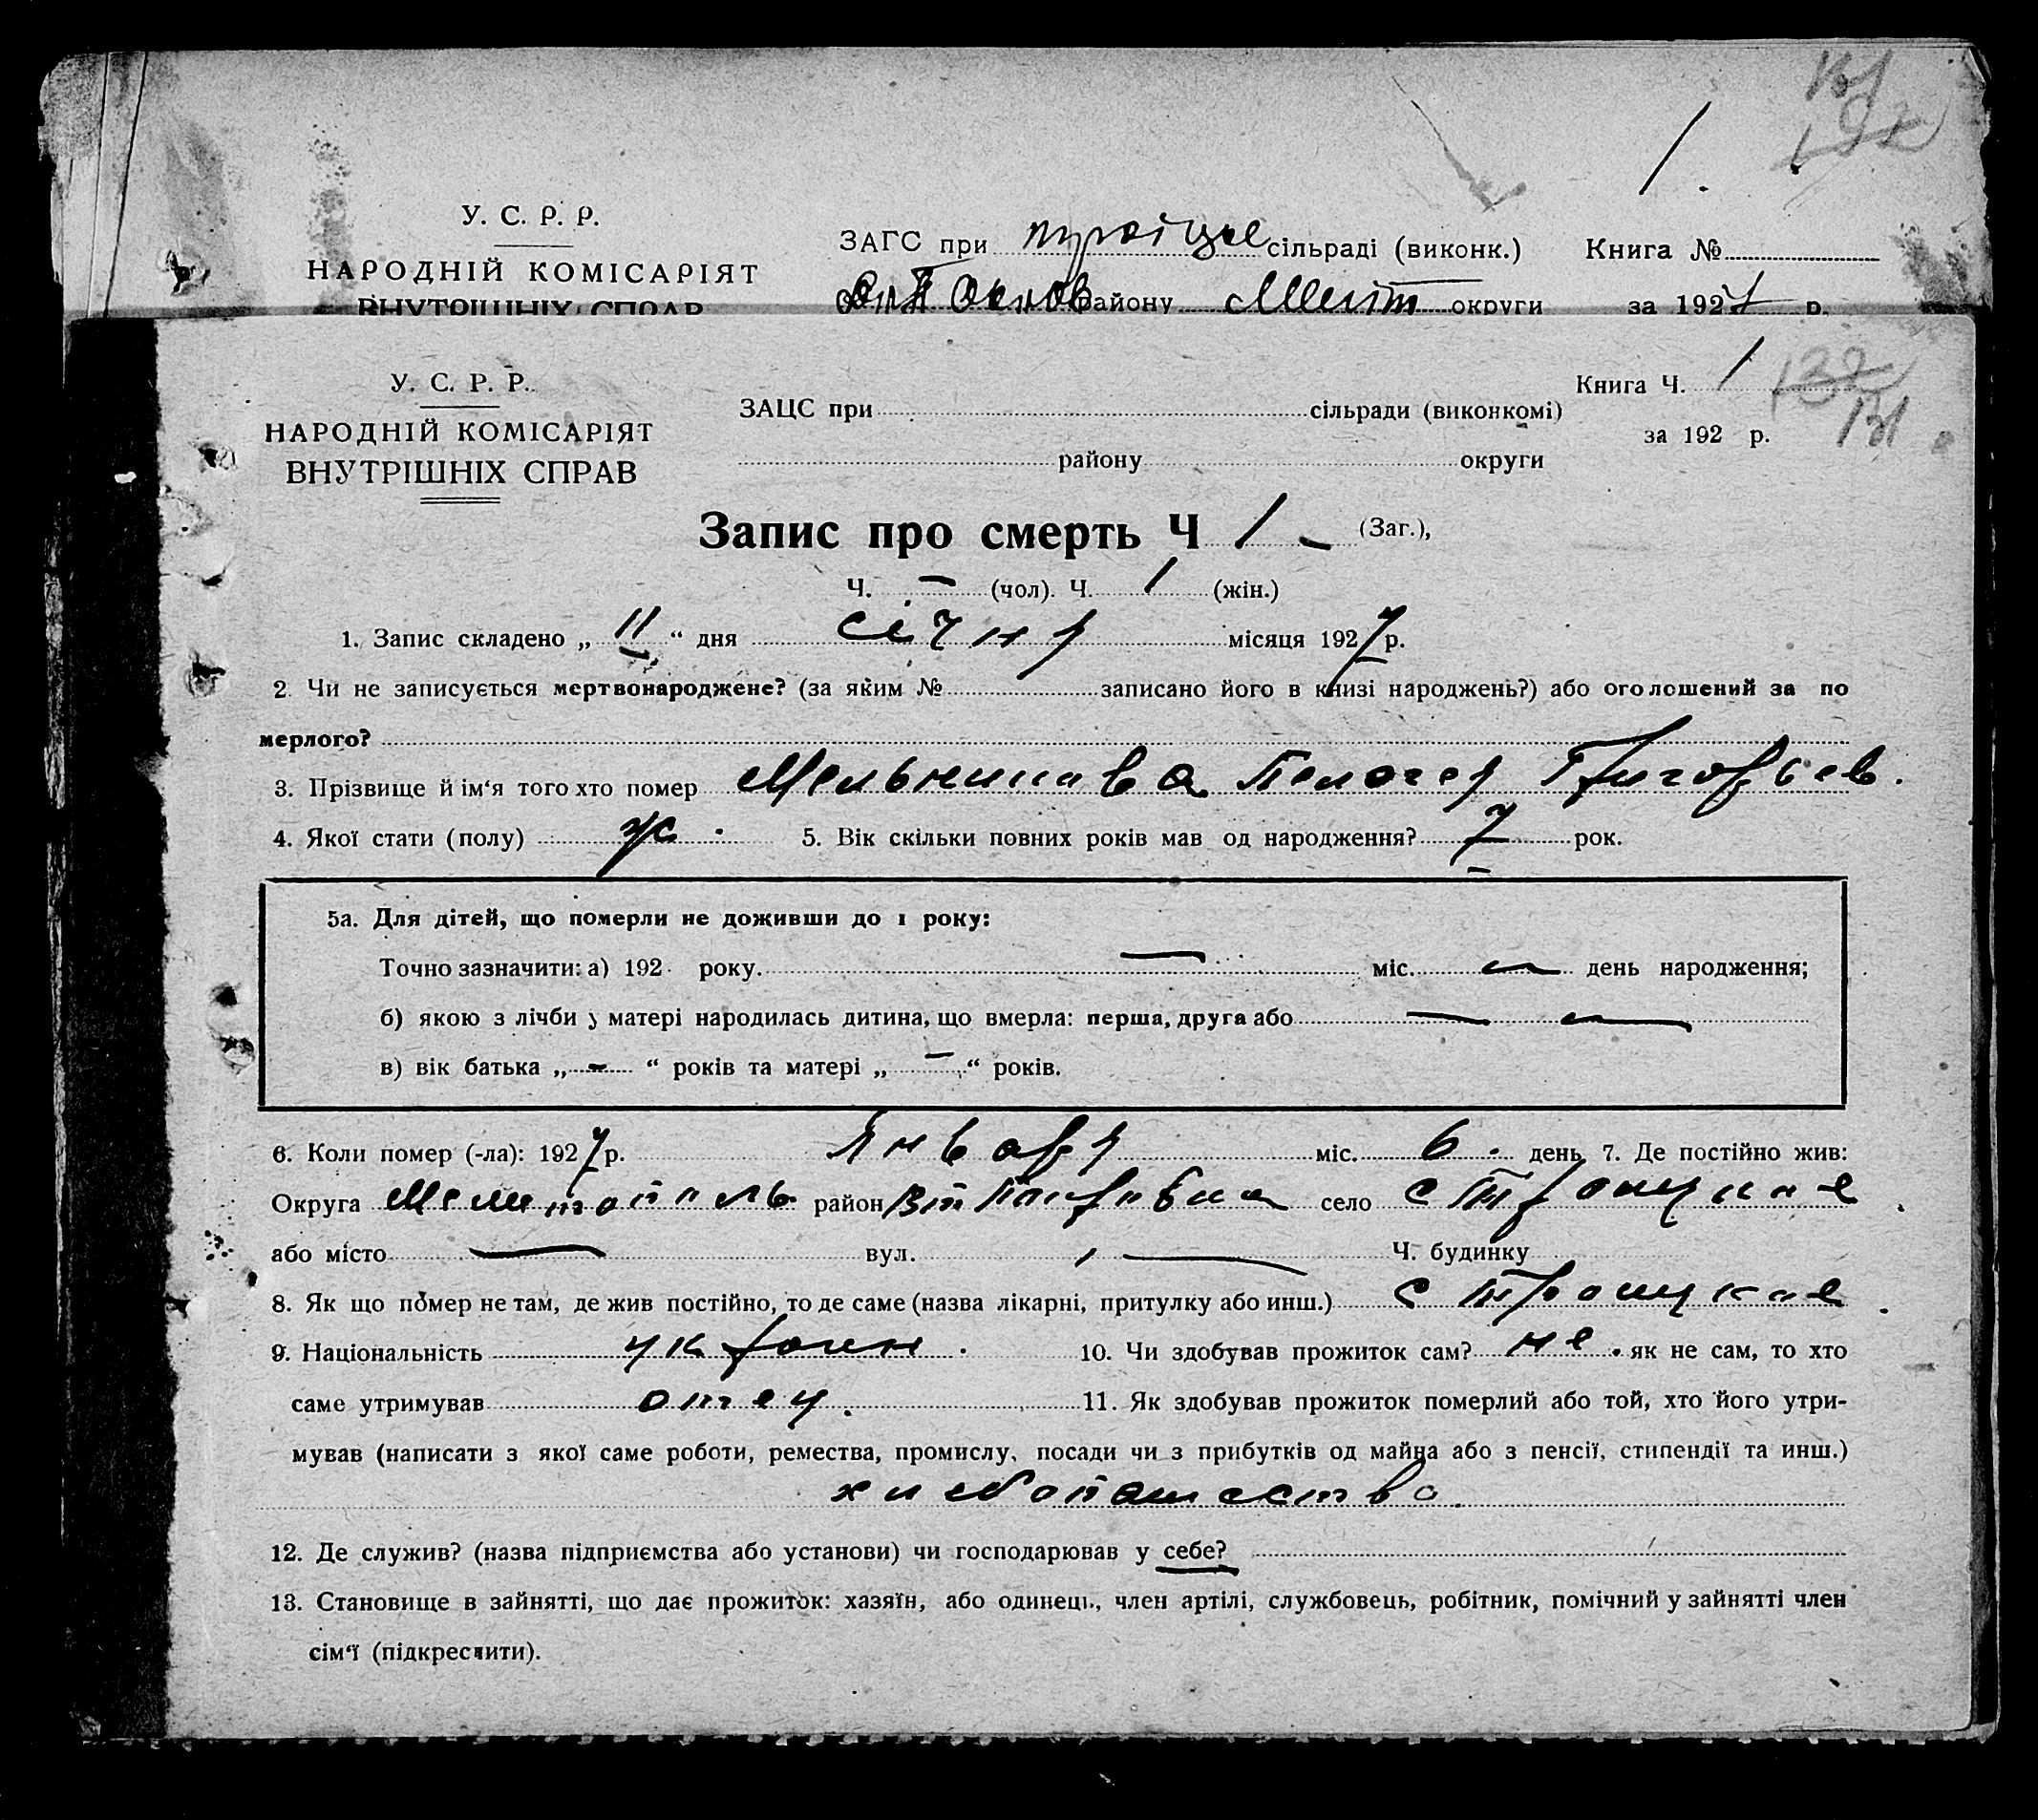 1.
У. С. Р. Р.
ЗАГС при троіцке сільраді (виконк.) Книга №
НАРОДНІЙ КОМІСАРІЯТ
ВНУТРІШНІХ СПРАВ
району Меліт округи за 1927 р.
У. С. Р. Р.
Книга Ч. 1 132
131
ЗАЦС при сільради (виконкомі)
за 192 р.
НАРОДНІЙ КОМІСАРІЯТ
району округи
ВНУТРІШНІХ СПРАВ
Запис про смерть Ч 1 – (Заг.),
Ч. – (чол). Ч. 1 (жін.)
1. Запис складено „ 11 “ дня січня місяця 1927 р.
2. Чи не записується мертвонароджене? (за яким № записано його в книзі народжень?) або оголошений за по
мерлого?
3. Прізвище й ім‘я того хто помер Мельникова Пелагея Григорьев.
4. Якої стати (полу) ж. 5. Вік скільки повних років мав од народження? 7 рок.
5а. Для дітей, що померли не доживши до 1 року:
Точно зазначити: а) 192 року. — міс. — день народження;
б) якою з лічби у матері народилась дитина, що вмерла: перша, друга або — —
в) вік батька „ – “ років та матері „ – “ років.
6. Коли помер (-ла): 1927 р. Января міс. 6. день 7. Де постійно жив:
Округа Мелитополь район село с Троицкае.
або місто — вул. — Ч. будинку
8. Як що помер не там, де жив постійно, то де саме (назва лікарні, притулку або инш.) с Троицкае.
9. Національність украин. 10. Чи здобував прожиток сам? не. як не сам, то хто
саме утримував отец. 11. Як здобував прожиток померлий або той, хто його утри-
мував (написати з якої саме роботи, ремества, промислу, посади чи з прибутків од майна або з пенсії, стипендії та инш.)
хлебопашество.
12. Де служив? (назва підприємства або установи) чи господарював у себе?
13. Становище в зайнятті, що дає прожиток: хазяїн, або одинець, член артілі, службовець, робітник, помічний у зайнятті член
сім‘ї (підкреслити).